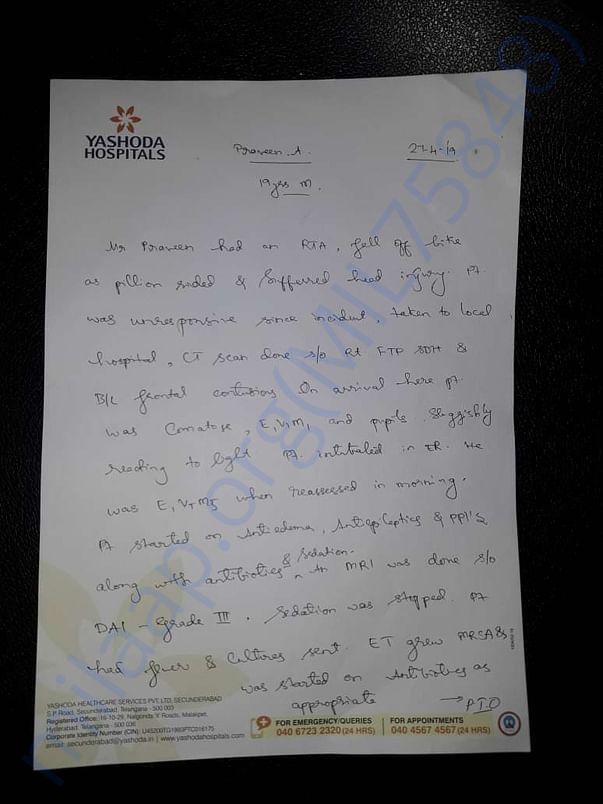 YASHODA
HOSPITALS
Praveen. A.
27-4-19
19 yrs M.
Mr Praveen had an RTA, fell off bike
as pillion rided & Sufferred head injury. Pt
was unresponsive since incident, taken to local
hospital, CT scan done s/o Rt FTP SDH &
B/L frontal contusions On arrival here pt
was Comatose, E1V1M1 and pupils Sluggishly
reacting to light Pt intubated in ER. He
was E1VTM5 when reassessed in morning.
Pt started on Antiedema, Antiepileptics & PPI's
along with antibiotics & sedation. An MRI was done s/o
DAI - Grade III. Sedation was stopped. Pt
had fever & Cultures sent. ET grew MRSA &
was started on Antibiotics as
appropriate
→ P.T.O
YASHODA HEALTHCARE SERVICES PVT. LTD, SECUNDERABAD
S.P. Road, Secunderabad, Telangana - 500 003
Registered Office: 16-10-29, Nalgonda 'X' Roads, Malakpet,
Hyderabad, Telangana - 500 036
Corporate Identity Number (CIN): U45200TG1993PTC016175
email: secunderabad@yashoda.in | www.yashodahospitals.com
FOR EMERGENCY/QUERIES
040 6723 2320 (24 HRS)
FOR APPOINTMENTS
040 4567 4567 (24 HRS)
milaap.org(MIL75848)